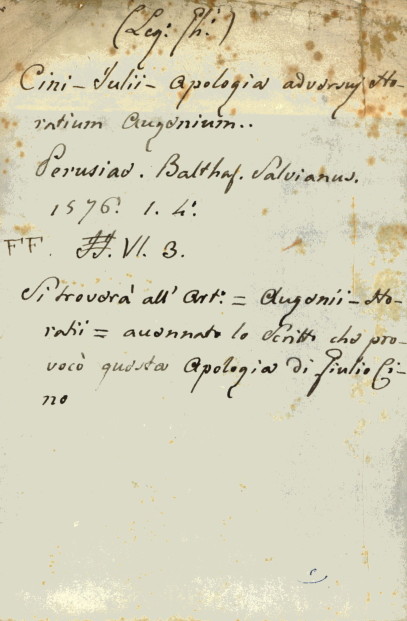 (Leg: Ph:)
Cini - Julii - Apologia adversus Ho-
ratium Augenium..
Perusiae. Balthas. Salvianus.
1576: 1. 4:
FF. VI. 3.
Si troverà all' Art: = Augenii - Ho-
ratii = accennato lo scritto che pro-
vocò questa Apologia di Giulio Ci-
no